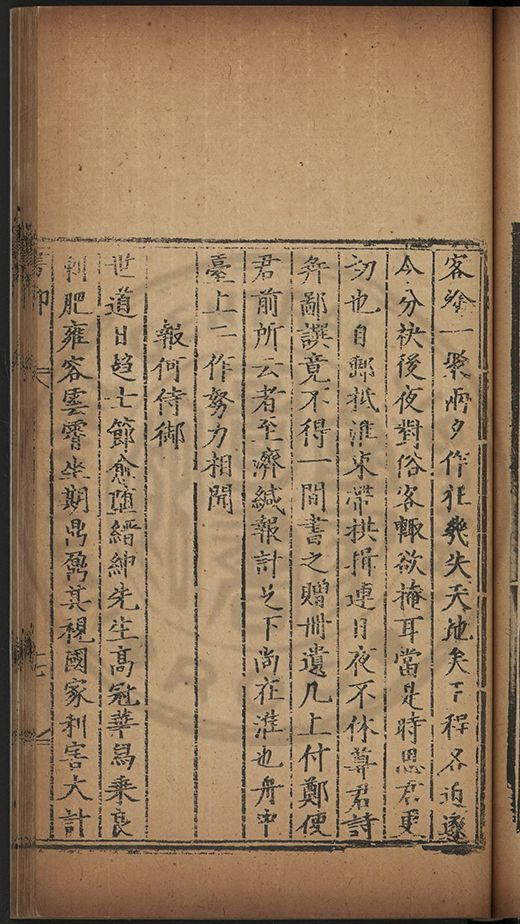 客途一聚兩夕作狂幾失天地矣下程各迫遂
今分袂後夜對俗客輒欲掩耳當是時思君更
切也自郵抵淮束帶拱揖連日夜不休尊君詩
弁鄙譔竟不得一間書之贈冊遺几上付鄭使
君前所云者至濟緘報計足下尚在淮也舟中
臺上二作努力相聞
報何侍御
世道日趋士節愈隨縉紳先生高冠華舄乘良
刺肥雍容雲霄坐期鼎鼐其視國家利害大計
七